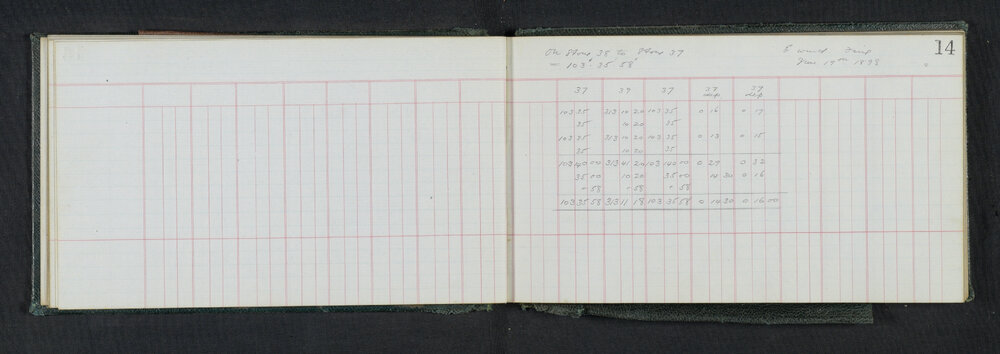 On Stone 38 to Stone 37 14
= 103° 35' 58" June 19th 1898
37 39 37 39 dep 39 dep
103 35 313 10 20 103 35 0 16 0 17
35 10 20 35
103 35 313 10 20 103 35 0 13 0 15
35 10 20 35
103 140 00 313 41 20 103 140 00 0 29 0 32
35 00 10 20 35 00 14 30 0 16
+ 58 + 58 + 58
103 35 58 313 11 18 103 35 58 0 14 30 0 16 00